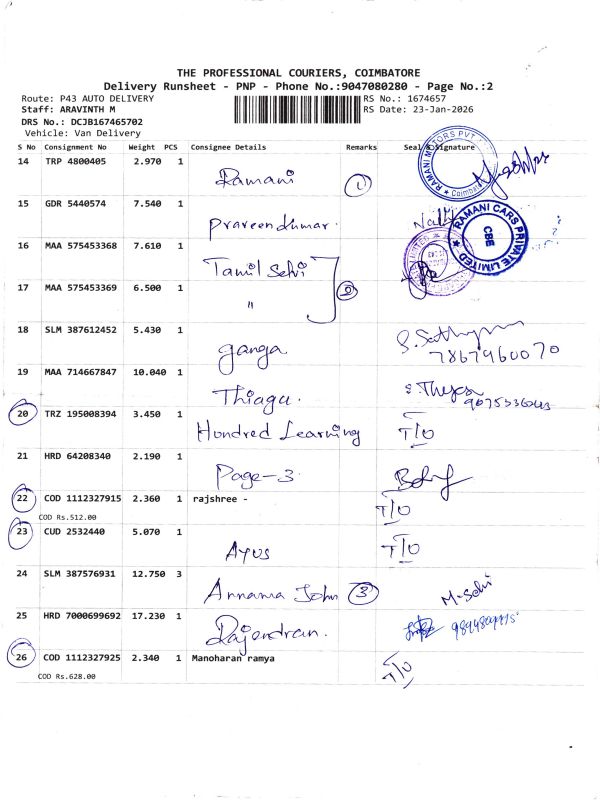 THE PROFESSIONAL COURIERS, COIMBATORE
Delivery Runsheet - PNP - Phone No.:9047080280 - Page No.:2
Route: P43 AUTO DELIVERY RS No.: 1674657
Staff: ARAVINTH M RS Date: 23-Jan-2026
DRS No.: DCJB167465702
Vehicle: Van Delivery
S No Consignment No Weight PCS Consignee Details Remarks Seal & Signature
14 TRP 4800405 2.970 1 Ramani 1
RAMANI MOTORS PVT Coimbatore
15 GDR 5440574 7.540 1 Praveenkumar.
RAMANI CARS PRIVATE LIMITED CBE
16 MAA 575453368 7.610 1 Tamil Selvi
17 MAA 575453369 6.500 1 " 2
18 SLM 387612452 5.430 1 ganga
7867960070
19 MAA 714667847 10.040 1 Thiagu.
20 TRZ 195008394 3.450 1 Hundred Learning T/O
21 HRD 64208340 2.190 1 Page-3
22 COD 1112327915 2.360 1 rajshree - T/O
COD Rs.512.00
23 CUD 2532440 5.070 1 Ayus T/O
24 SLM 387576931 12.750 3 Annama John 3 M. Selvi
25 HRD 7000699692 17.230 1 Rajendran.
26 COD 1112327925 2.340 1 Manoharan ramya T/O
COD Rs.628.00